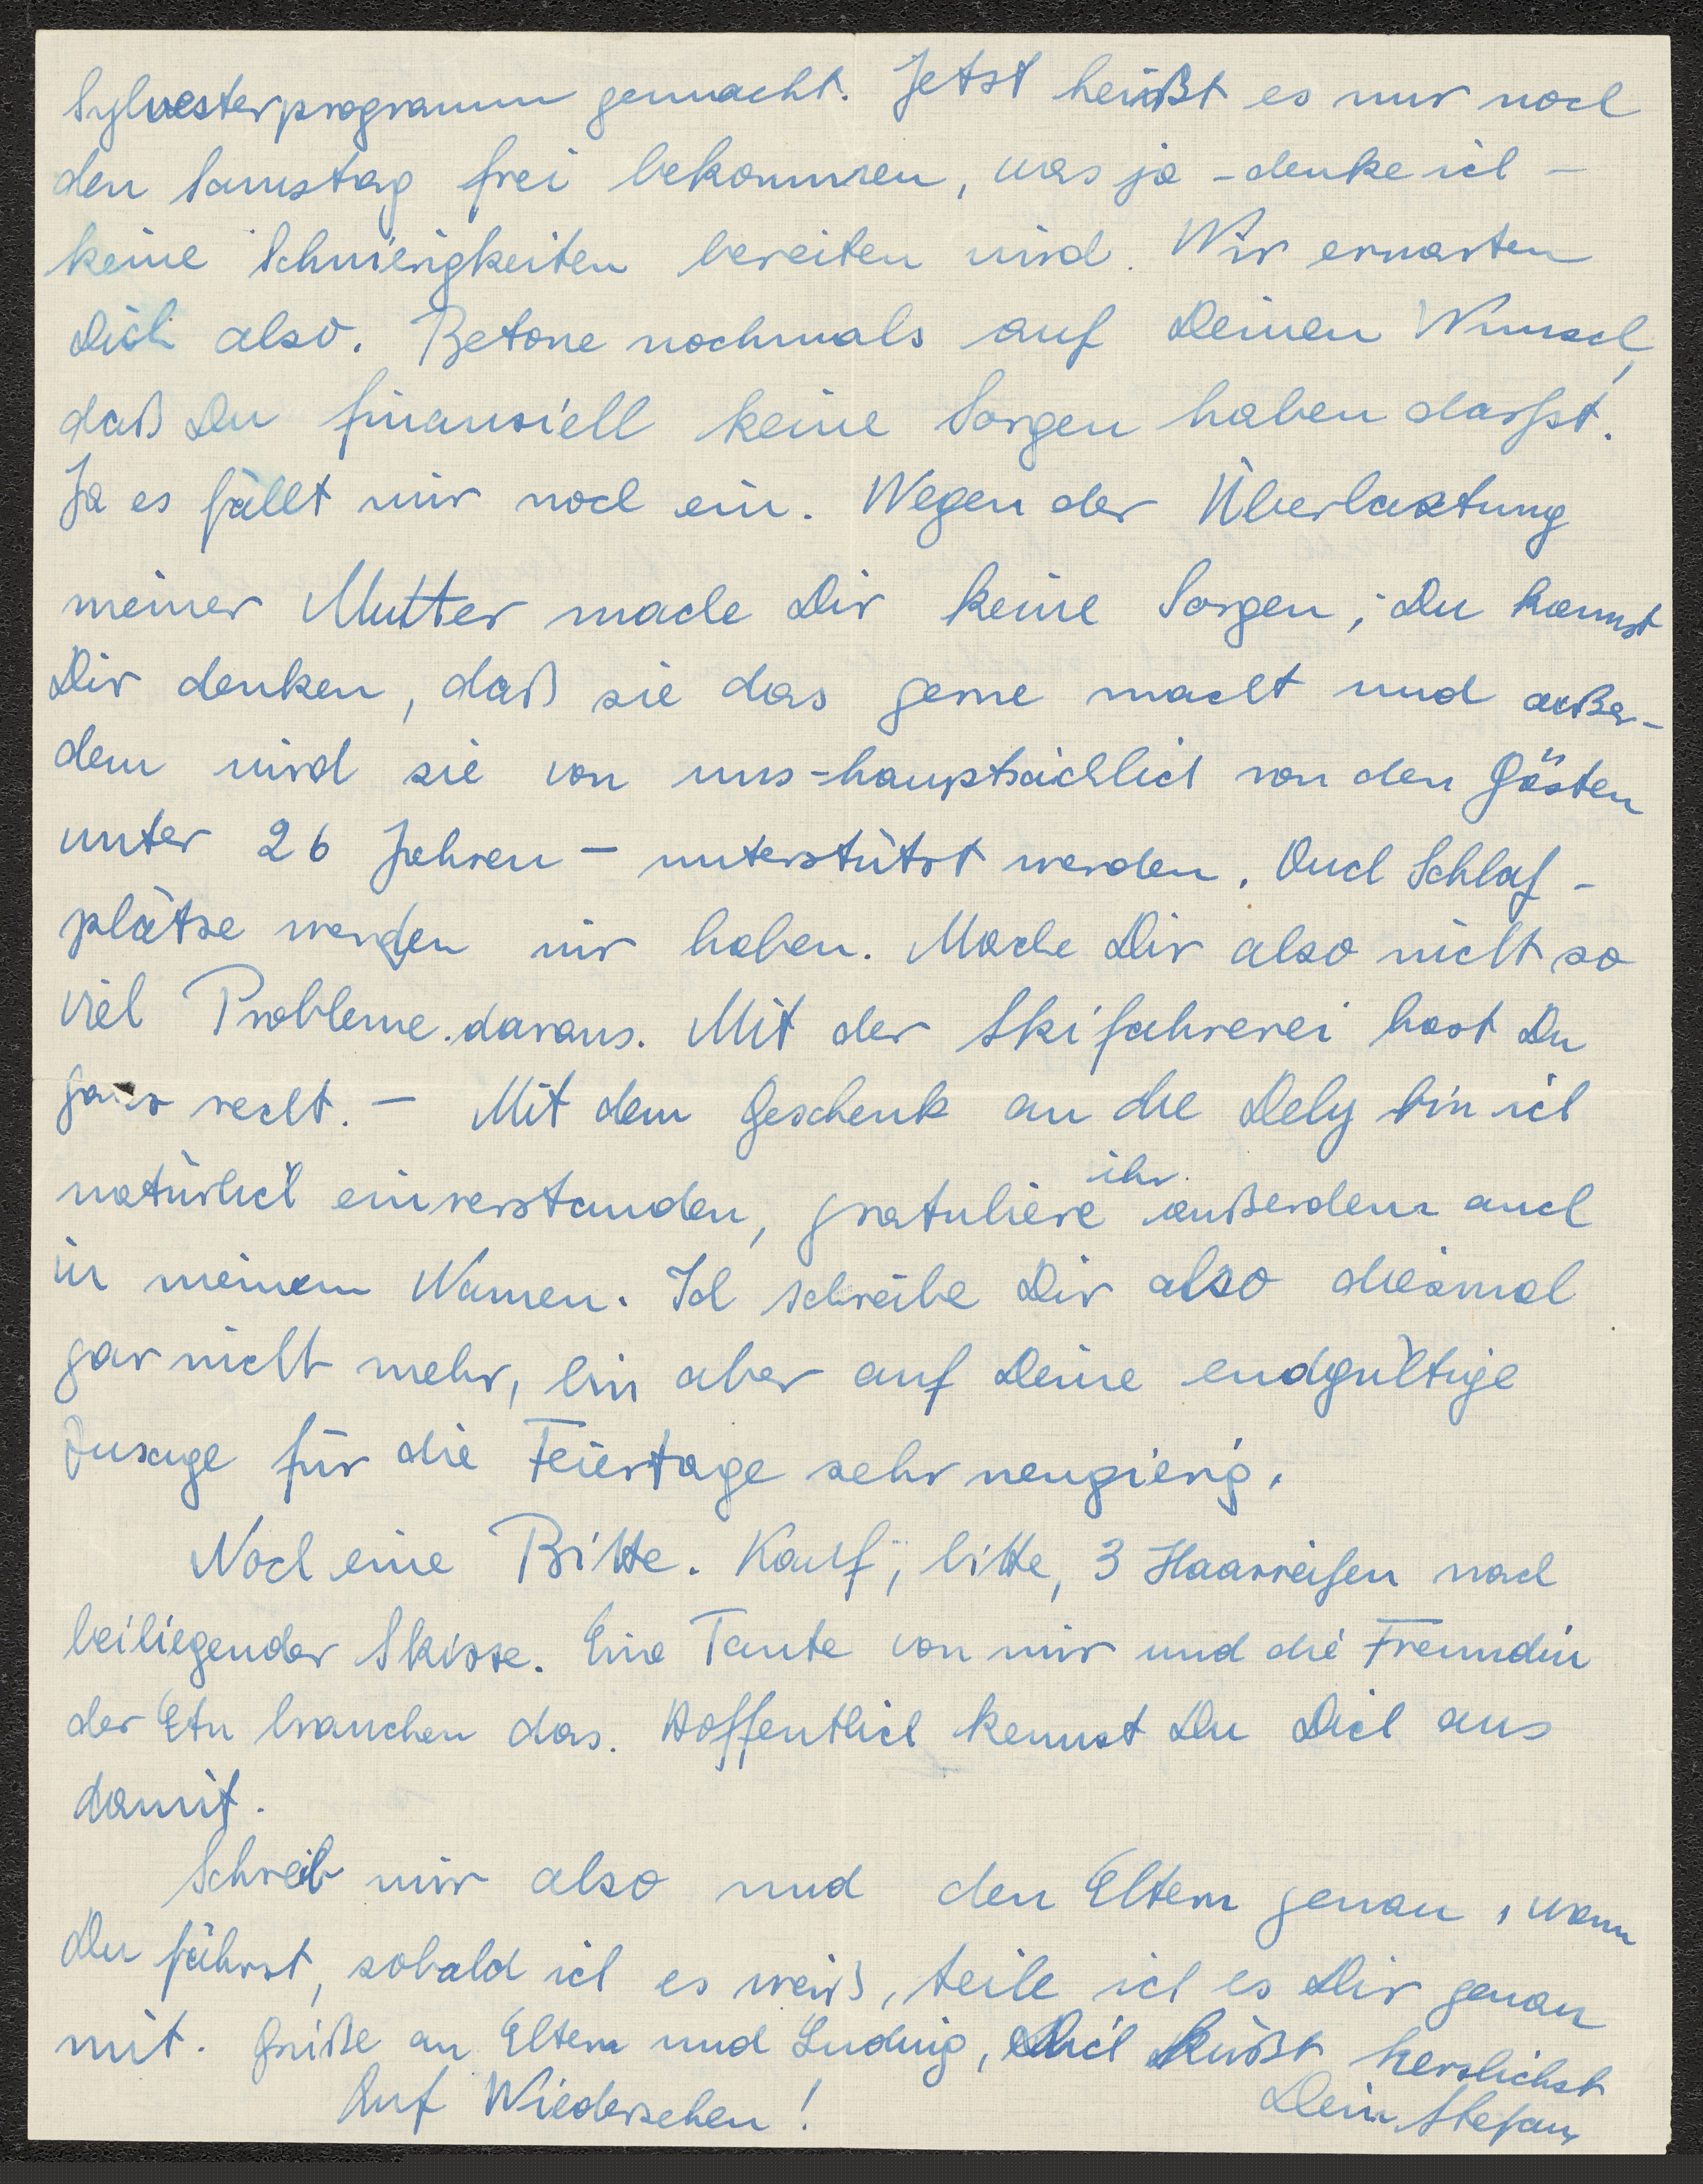 Sylvesterprogramm gemacht. Jetzt heißt es nur noch
den Samstag frei bekommen, was ja - denke ich -
keine Schwierigkeiten bereiten wird. Wir erwarten
Dich also. Betone nochmals auf Deinen Wunsch,
daß Du finanziell keine Sorgen haben darfst.
Ja es fällt mir noch ein. Wegen der Überlastung
meiner Mutter mache Dir keine Sorgen; Du kannst
Dir denken, daß sie das gerne macht und außer-
dem wird sie von uns - hauptsächlich von den Gästen
unter 26 Jahren - unterstützt werden. Auch Schlaf-
plätze werden wir haben. Mache Dir also nicht so
viel Probleme daraus. Mit der Skifahrerei hast Du
ganz recht. - Mit dem Geschenk an die Dely bin ich
natürlich einverstanden, gratuliere ihr außerdem auch
in meinem Namen. Ich schreibe Dir also diesmal
gar nicht mehr, bin aber auf Deine endgültige
Zusage für die Feiertage sehr neugierig.
Noch eine Bitte. Kauf, bitte, 3 Haarreifen nach
beiliegender Skizze. Eine Tante von mir und die Freundin
der Etu brauchen das. Hoffentlich kennst Du Dich aus
damit.
Schreib mir also und den Eltern genau, wann
Du fährst, sobald ich es weiß, teile ich es Dir genau
mit. Grüße an Eltern und Ludwig, Dich küßt herzlichst
Auf Wiedersehen! Dein Stefan